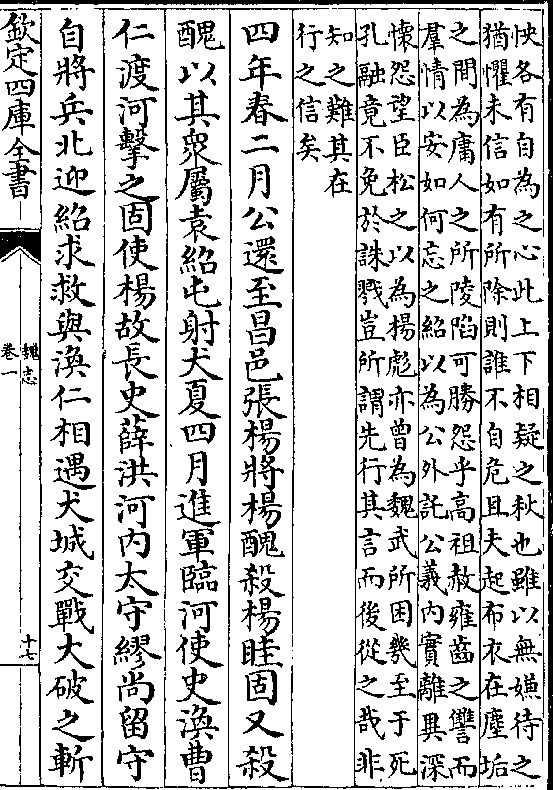 怏各有自為之心此上下相疑之秋也雖以無嫌待之
猶懼未信如有所除則誰不自危且夫起布衣在塵垢
之間為庸人之所陵陷可勝怨乎高祖赦雍齒之讐而
羣情以安如何忘之紹以為公外託公義内實離異深
懷怨望臣松之以為楊彪亦曾為魏武所困幾至于死
孔融竟不免於誅戮豈所謂先行其言而後從之哉非
知之難其在
行之信矣
四年春二月公還至昌邑張楊將楊醜殺楊眭固又殺
醜以其衆屬袁紹屯射犬夏四月進軍臨河使史渙曹
仁渡河擊之固使楊故長史薛洪河内太守繆尚留守
自將兵北迎紹求救與渙仁相遇犬城交戰大破之斬
欽定四庫全書
魏志
卷一
十七